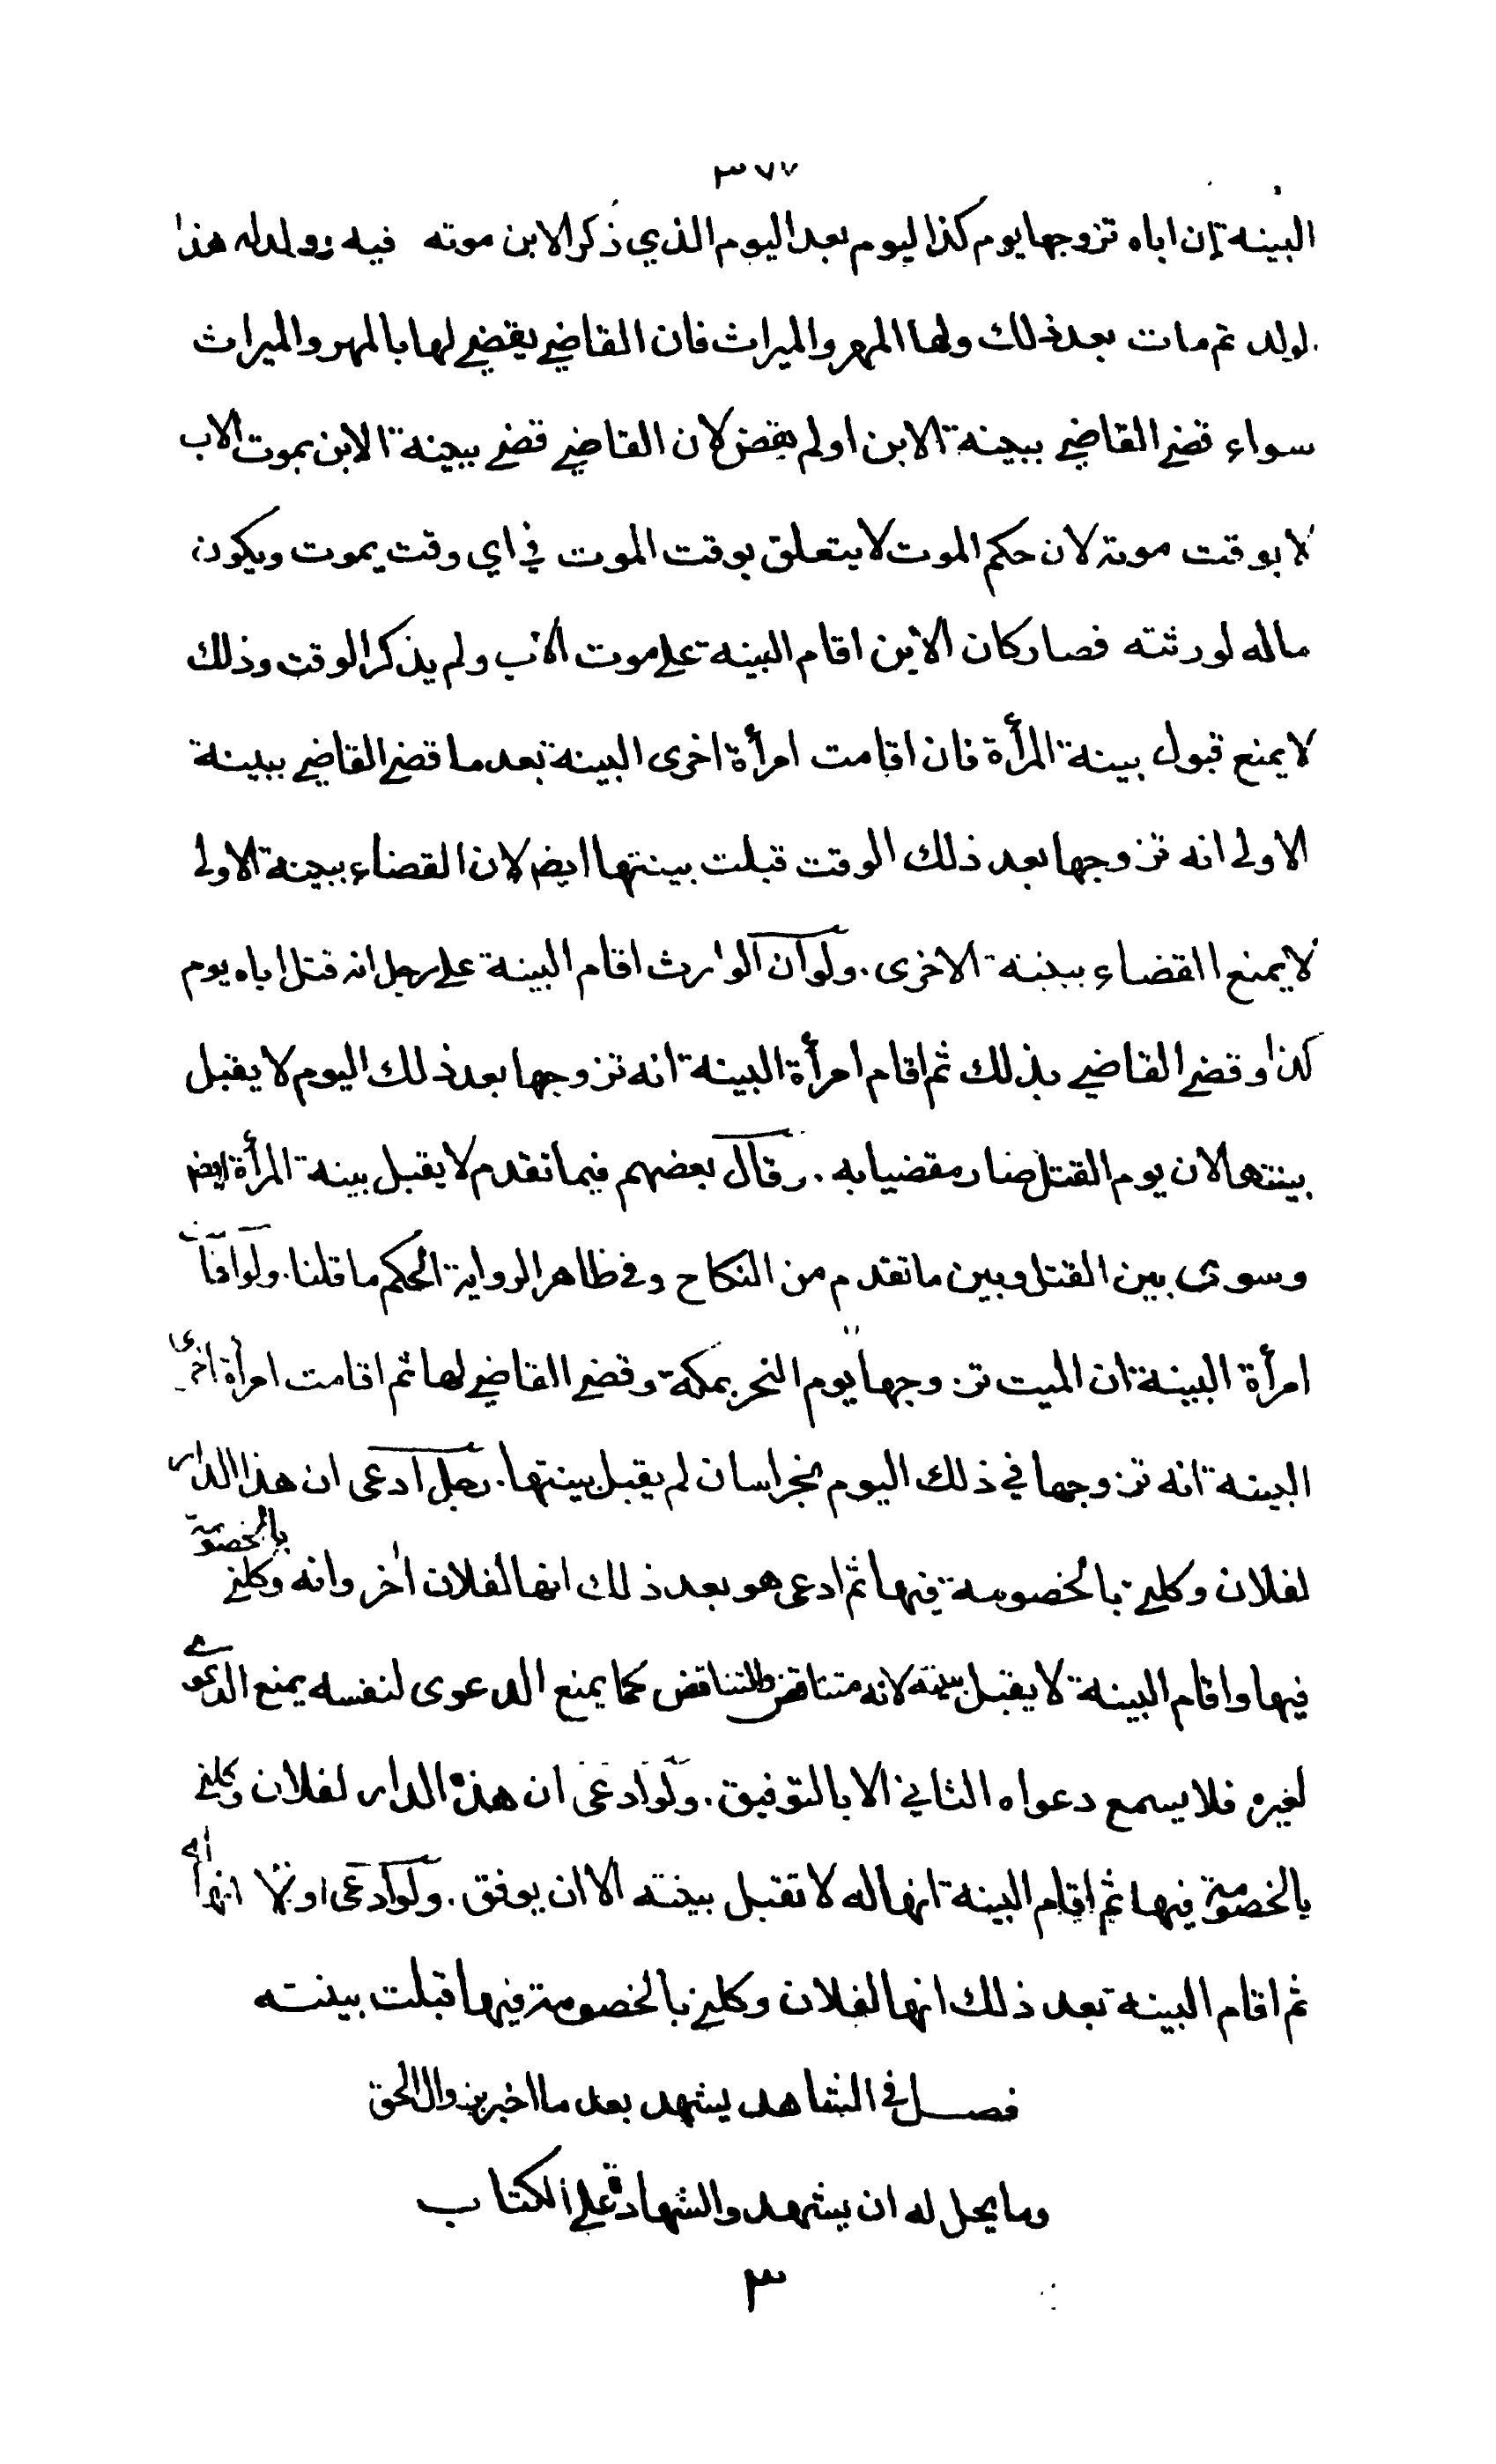 ٣٧٧
البينة إن اباه تزوجها يوم كذا ليوم بعد اليوم الذي ذكر الابن موته فيه وولد له هذا
الولد ثم مات بعد ذلك ولها المهر والميراث فان القاضي يقضي لها بالمهر والميراث
سواء قضى القاضي ببينة الابن او لم يقض لان القاضي قضى ببينة الابن بموت الاب
لا بوقت موته لان حكم الموت لا يتعلق بوقت الموت في اي وقت يموت ويكون
ماله لورثته فصار كان الابن اقام البينة على موت الاب ولم يذكر الوقت وذلك
لا يمنع قبول بينة المرأة فان اقامت امرأة اخرى البينة بعد ما قضى القاضي ببينة
الاولى انه تزوجها بعد ذلك الوقت قبلت بينتها ايضا لان القضاء ببينة الاولى
لا يمنع القضاء ببينة الاخرى. ولو ان الوارث اقام البينة على رجل انه قتل اباه يوم
كذا وقضى القاضي بذلك ثم اقام امرأة البينة انه تزوجها بعد ذلك اليوم لا يقبل
بينتها لان يوم القتل صار مقضيا به. وقال بعضهم فيما تقدم لا يقبل بينة المرأة ايضا
وسوى بين القتل وبين ما تقدم من النكاح وفي ظاهر الرواية الحكم ما قلنا. ولو اقامت
امرأة البينة ان الميت تزوجها يوم النحر بمكة وقضى القاضي لها ثم اقامت امرأة اخرى
البينة انه تزوجها في ذلك اليوم بخراسان لم يقبل بينتها. رجل ادعى ان هذا الدار
لفلان وكلني بالخصومة فيها ثم ادعى هو بعد ذلك انها لفلان اٰخر وانه وكلني بالخصومة
فيها واقام البينة لا يقبل بينته لانه متناقض والتناقض كما يمنع الدعوى لنفسه يمنع الدعوى
لغيره فلا يسمع دعواه الثاني الا بالتوفيق. ولو ادعى ان هذه الدار لفلان وكلني
بالخصومة فيها ثم اقام البينة انها له لا تقبل بينته الا ان يوفق. ولو ادعى اولا انها له
ثم اقام البينة بعد ذلك انها لفلان وكلني بالخصومة فيها قبلت بينته
فصل في الشاهد يشهد بعد ما اخبر بزوال الحق
وما يحل له ان يشهد والشهادة على الكتاب
٣